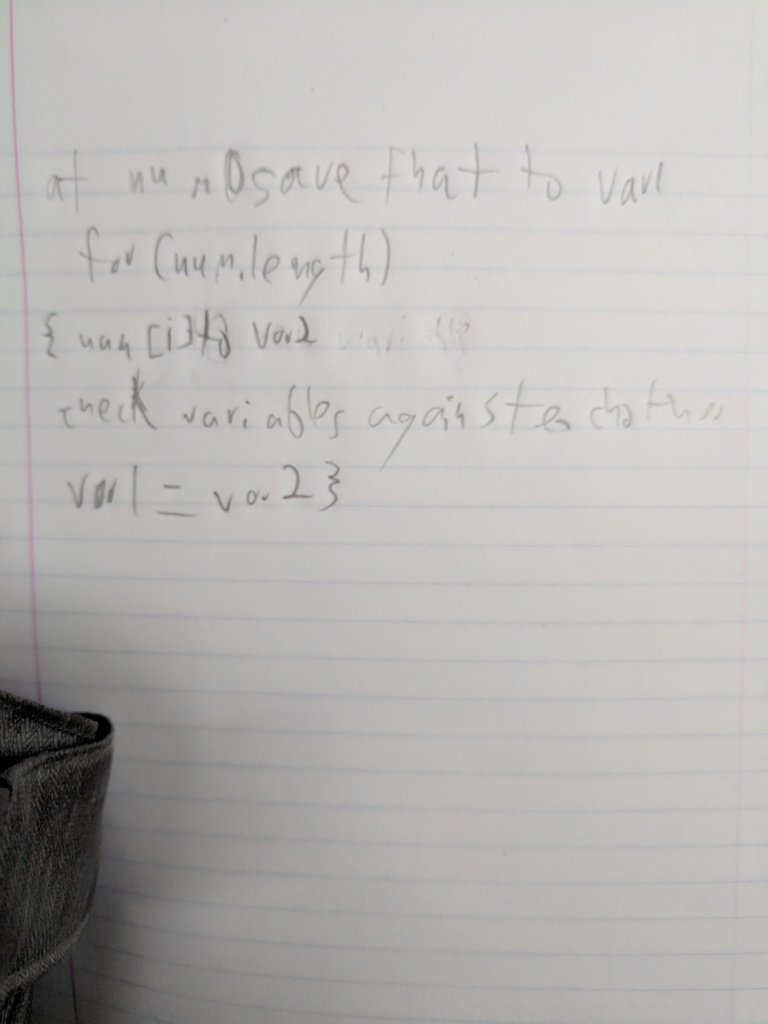 at num 0 save that to var1
for (num.length)
{ num [i] to var2
check variables against eachother
var1 = var2 }